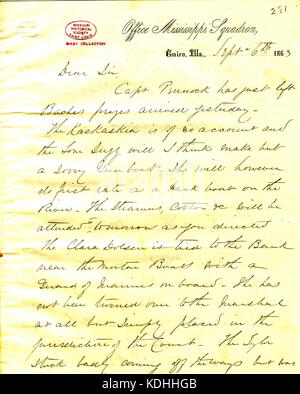 281
MISSOURI
HISTORICAL
SOCIETY
SAINT LOUIS
BIXBY COLLECTION
Office Mississippi Squadron,
Cairo, Ills., Sept 6th 1863
Dear Sir
Capt has just left
prizes arrived yesterday -
The Kaskaskia is of no account and
the Tom Sugg will I think make but
a sorry Gunboat. She will however
do first rate as a boat on the
River - The Stearns, Cotton &c will be
attended to tomorrow as you directed
The Clara Dolsen is tied to the Bank
near the Mortar Boats with a
Guard of Marines on board - She has
not been turned over to the Marshal
at all but simply placed in the
jurisdiction of the Court - The
stuck badly coming off the ways but was
alamy
Image ID: KDHHGB
www.alamy.com